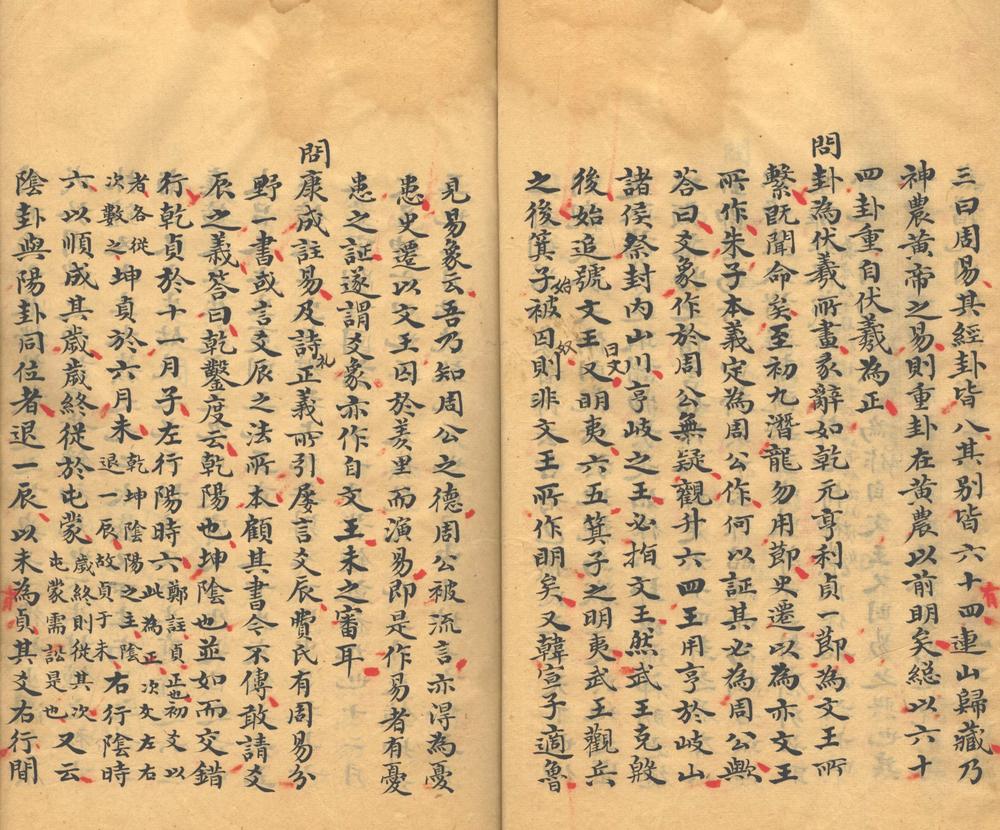 三曰周易其經卦皆八其別皆六十四連山歸藏乃
神農黃帝之易則重卦在黃農以前明矣總以六十
四卦重自伏羲為正
問卦為伏羲所畫彖辭如乾元亨利貞一節為文王所
繫既聞命矣至初九潛龍勿用節史遷以為亦文王
所作朱子本義定為周公作何以証其必為周公歟
荅曰爻象作於周公無疑觀升六四王用亨於岐山
諸侯祭封內山川亨岐之王必指文王然武王克殷
後始追號文王又明夷六五箕子之明夷武王觀兵
之後箕子始被囚奴則非文王所作明矣又韓宣子適魯
見易象云吾乃知周公之德周公被流言亦得為憂
患史遷以文王囚於羑里而演易即是作易者有憂
患之証遂謂爻象亦作自文王未之審耳
問康成註易及詩礼正義所引屢言爻辰費氏有周易分
野一書或言爻辰之法所本顧其書今不傳敢請爻
辰之義答曰乾鑿度云乾陽也坤陰也並如而交錯
行乾貞於十一月子左行陽時六鄭註貞正也初爻以此為正次爻左右
者各從次數之坤貞於六月未乾坤陰陽之主陰退一辰故貞于未右行陰時
六以順成其歲歲終從於屯蒙歲終則從其次屯蒙需訟是也又云
陰卦與陽卦同位者退一辰以未為貞其爻右行間